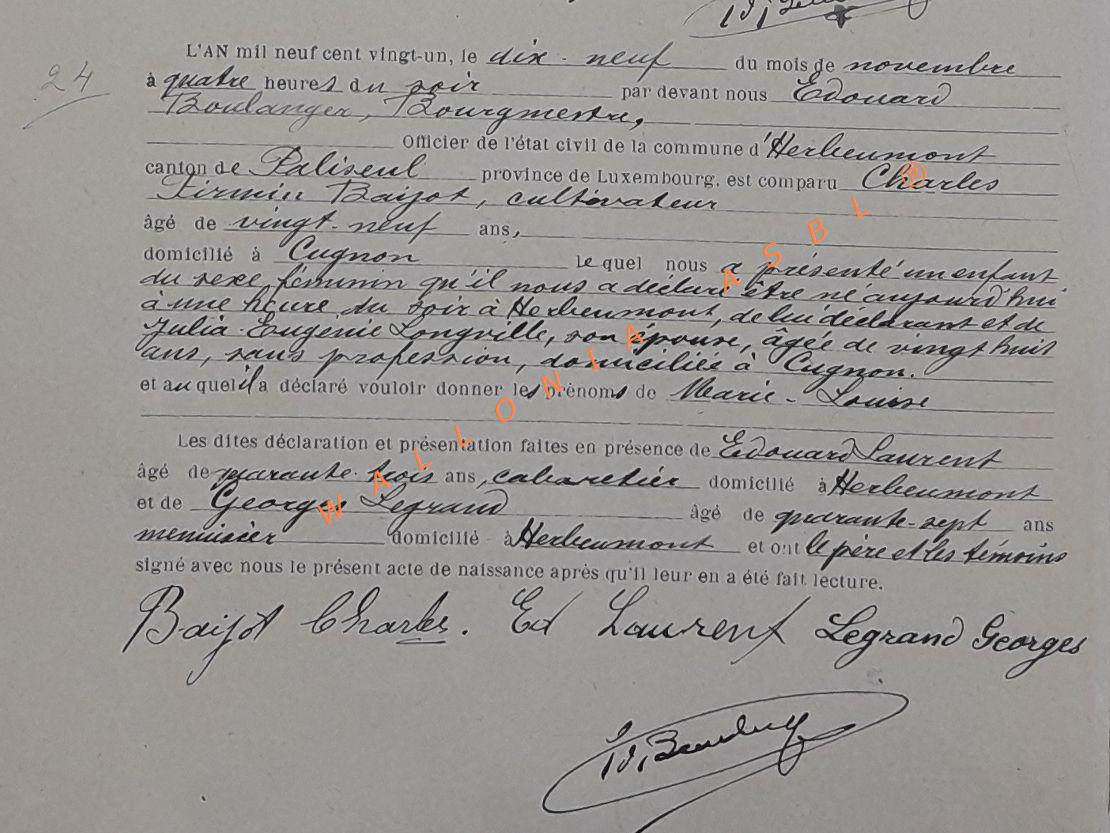 L'AN mil neuf cent vingt-un, le dix-neuf du mois de novembre
24
à quatre heures du soir par devant nous Edouard
Boulanger, Bourgmestre,
Officier de l'état civil de la commune d'Herbeumont
canton de Paliseul province de Luxembourg, est comparu Charles
Firmin Baijot, cultivateur
âgé de vingt-neuf ans,
domicilié à Cugnon lequel nous a présenté un enfant
du sexe féminin qu'il nous a déclaré être né aujourd'hui
à une heure du soir à Herbeumont, de lui déclarant et de
Julia Eugenie Longville, son épouse, âgée de vingt huit
ans, sans profession, domiciliée à Cugnon.
et auquel il a déclaré vouloir donner les prénoms de Marie-Louise
Les dites déclaration et présentation faites en présence de Edouard Laurent
âgé de quarante-trois ans, cabaretier domicilié à Herbeumont
et de Georges Legrand âgé de quarante-sept ans
menuisier domicilié à Herbeumont et ont le père et les témoins
signé avec nous le présent acte de naissance après qu'il leur en a été fait lecture.
Baijot Charles. Ed Laurent Legrand Georges
WALLONIA ASBL ®